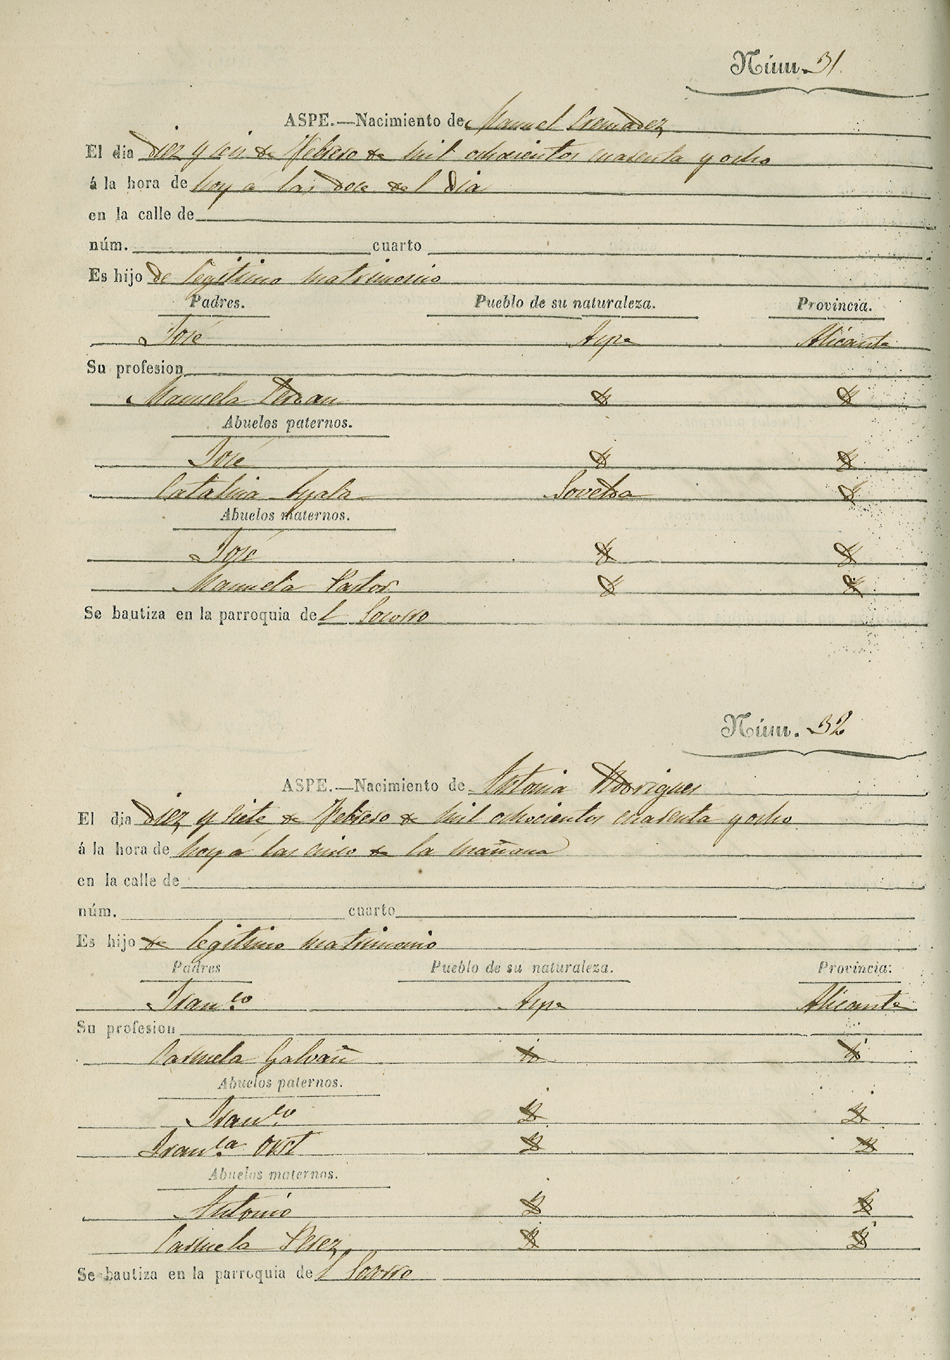 Núm. 31
ASPE.—Nacimiento de Manuel Cremadez
El dia diez y seis de Febrero de mil ochocientos cuarenta y ocho
á la hora de hoy a las doce del dia
en la calle de
núm. cuarto
Es hijo de legitimo matrimonio
Padres. Pueblo de su naturaleza. Provincia.
José Aspe Alicante
Su profesion
Manuela
Abuelos paternos.
José
Catalina Ayala
Abuelos maternos.
José
Manuela Pastor
Se bautiza en la parroquia del Socorro
Núm. 32
ASPE.—Nacimiento de Antonia Rodrigues
El dia diez y siete de Febrero de mil ochocientos cuarenta y ocho
á la hora de hoy a las cinco de la mañana
en la calle de
núm. cuarto
Es hijo de legitimo matrimonio
Padres Pueblo de su naturaleza. Provincia:
Franco Aspe Alicante
Su profesion
Carmela Galvañ
Abuelos paternos.
Franco
Franca
Abuelos maternos.
Antonio
Carmela Perez
Se bautiza en la parroquia del Socorro